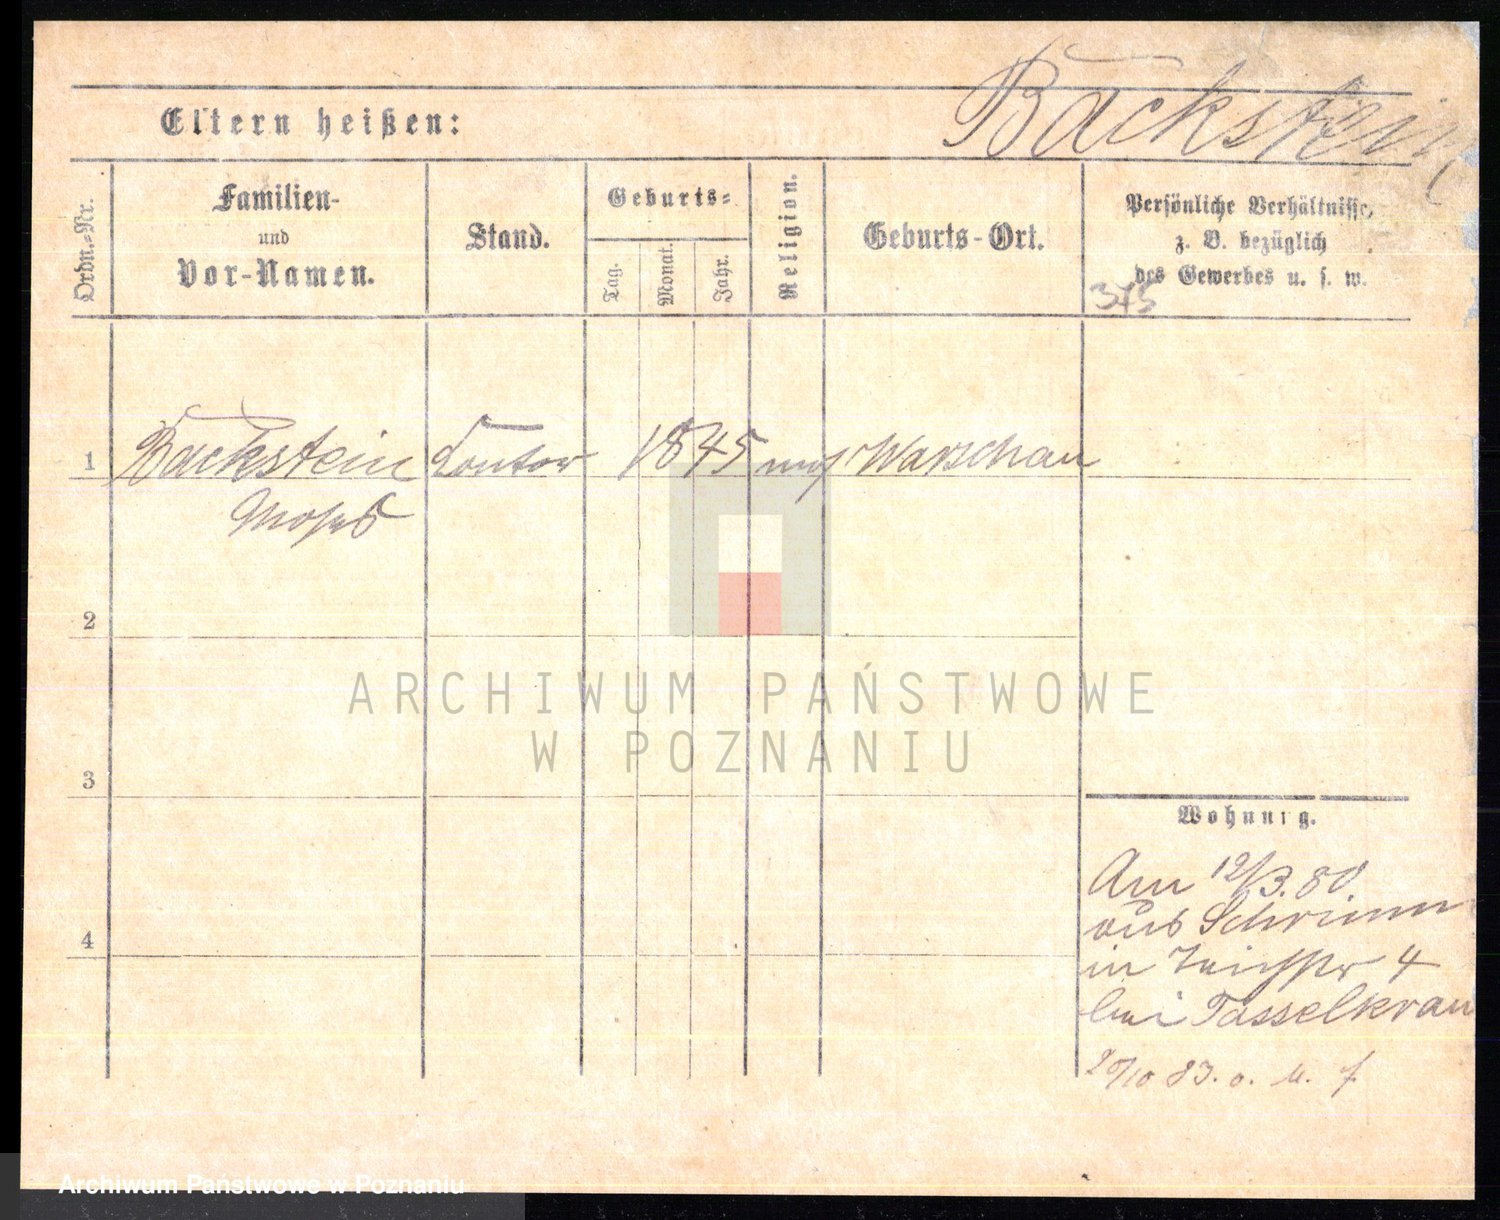 Backstein
Eltern heißen:
Ordn.=Nr.
Familien-
und
Vor-Namen.
Stand.
Geburts=
Tag.
Monat.
Jahr.
Religion.
Geburts-Ort.
Persönliche Verhältnisse,
z. B. bezüglich
des Gewerbes u. s. w.
375
1 Backstein 1845 mos Warschau
Moses
2
3
4
ARCHIWUM PAŃSTWOWE
W POZNANIU
Wohnung.
Am 12/3. 80.
aus Schrimm
in Teichstr 4
bei Tasselkraut
83. o. M. f.
Archiwum Państwowe w Poznaniu